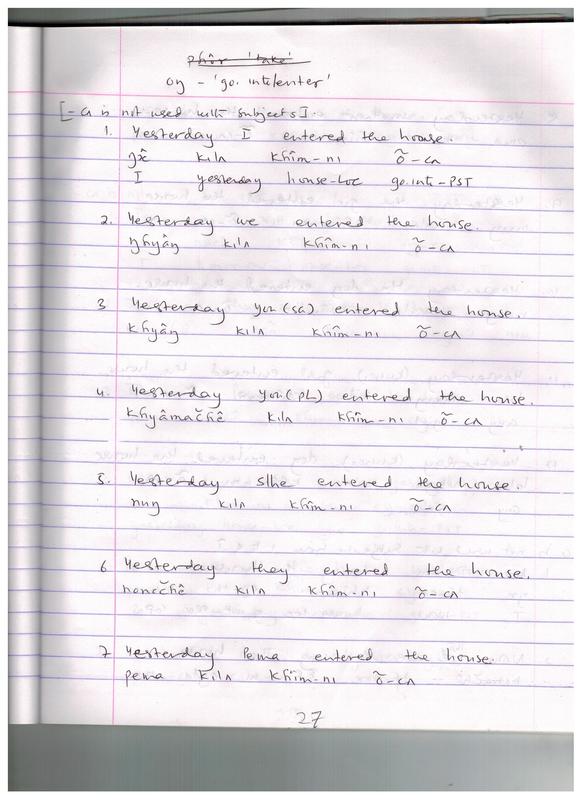 phôr 'take'
oŋ - 'go.into/enter'
[-a is not used with subjects].
1. Yesterday I entered the house.
kilʌ khîm-ni õ-cʌ
I yesterday house-LOC go.into-PST
2. Yesterday we entered the house.
ŋhyâŋ kilʌ khîm-ni õ-cʌ
3 Yesterday you (SG) entered the house.
khyâŋ kilʌ khîm-ni õ-cʌ
4. Yesterday you (PL) entered the house.
khyâmačhê kilʌ khîm-ni õ-cʌ
5. Yesterday s/he entered the house.
nuŋ kilʌ khîm-ni õ-cʌ
6 Yesterday they entered the house.
kilʌ khîm-ni õ-cʌ
7 Yesterday Pema entered the house.
pema kilʌ khîm-ni õ-cʌ
27